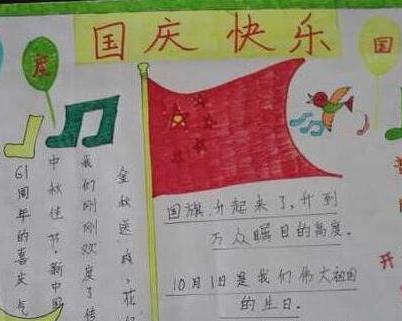 国庆快乐
度
国
国旗升起来了,升到
万众瞩目的高度。
10月1日是我们伟大祖国
的生日。
金秋送
我们刚刚欢度了传
中秋佳节,新中国
61周年的喜庆气
开